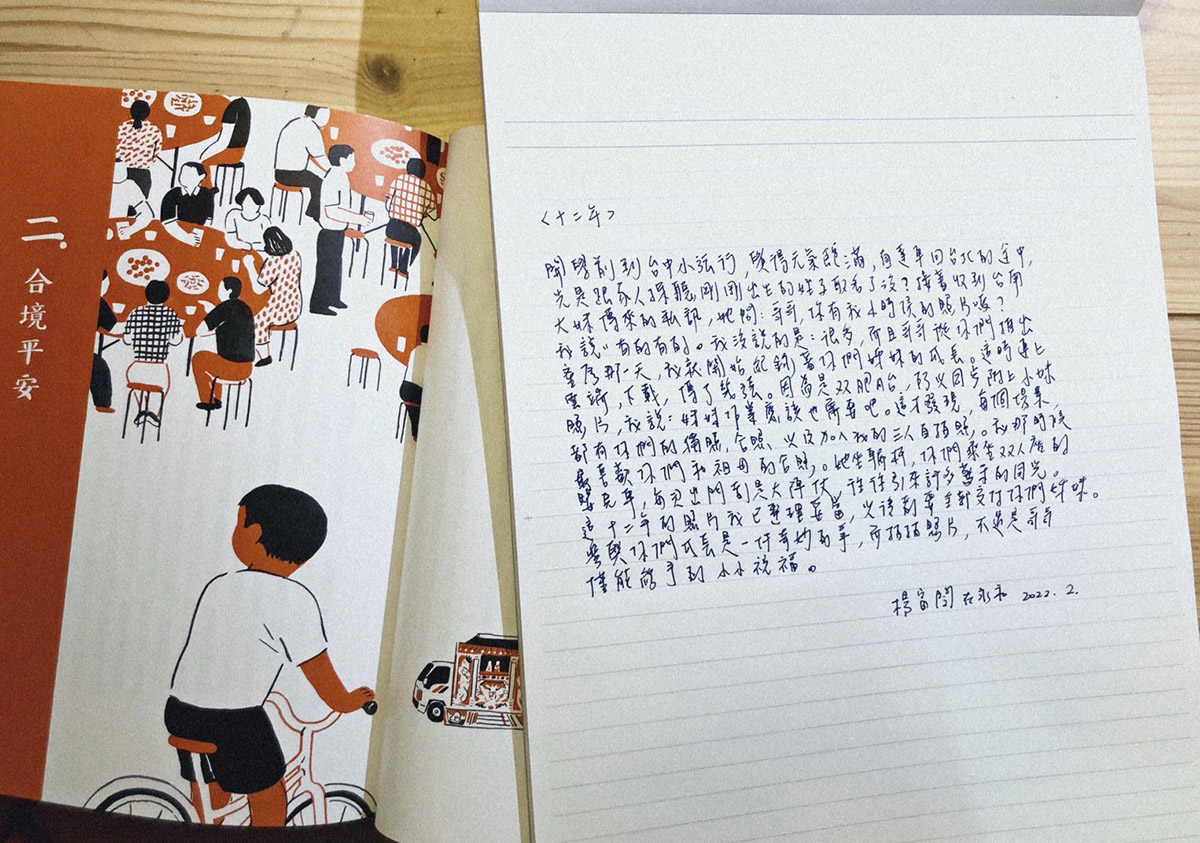 二、合境平安
〈十二年〉
開學前到台中小旅行,覺得元氣飽滿,自達車回台北的途中,
先是跟家人探聽,剛剛出生的姪子取名了沒?接著收到台南
大妹傳來的私訊,她問:哥哥,你有我小時候的照片嗎?
我說:有的有的。我沒說的是:很多,而且哥哥從你們推出
產房那一天,我就開始紀錄著你們姊妹的成長。這時連上
雲端,下載,傳了幾張。因為是双胞胎,所以同步附上小妹
照片,我說:妹妹作業應該也需要吧。這才發現,每個場景,
都有你們的獨照、合照,以及加入我的三人自拍照。我那時候
最喜歡你們和祖母的合照。她坐輪椅,你們乘坐双人座的
嬰兒車,每次出門都是大陣仗,往往引來許多驚奇的同光。
這十二年的照片我已整理妥當,以後到畢業新交付你們姊妹。
參與你們成長是一件奇妙的事,而拍拍照片,不過是哥哥
僅能給予的小小祝福。
楊富閔 在永和 2022.2.